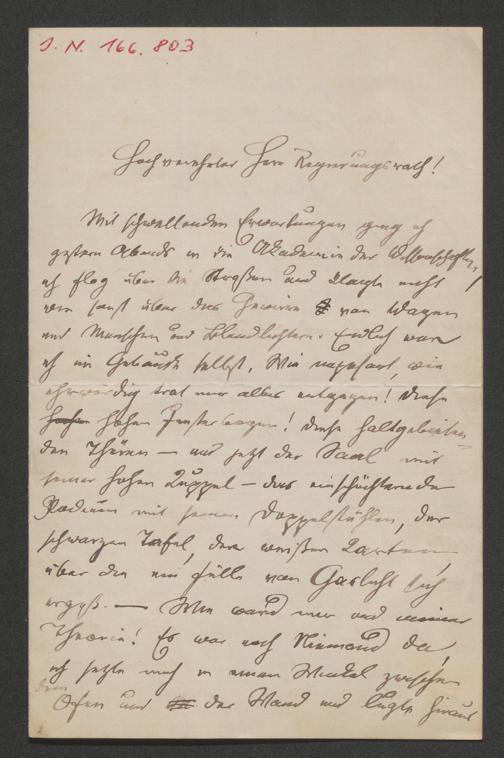 J. N. 166.803
Hochverehrter Herr Regierungsrath!
Mit schwellenden Erwartungen ging ich
gestern Abends in die Akademie der Wissenschaften,
ich flog über die Straßen und klagte nicht
wie sonst über das Gewirre von Wagen
und Menschen und Blendlichtern. Endlich war
ich im Gebäude selbst. Wie, wie
ehrwürdig trat mir alles entgegen! Diese
hohen Fensterbogen! diese Halt gebieten-
den Thüren — und jetzt der Saal mit
seiner hohen Kuppel — das einschüchternde
Podium mit seinen Doppelstühlen, der
schwarzen Tafel, den weißen Karten,
über die eine Fülle von Gaslicht sich
ergoß. — Wie ward mir und meiner
Theorie! Es war noch Niemand da,
ich setzte mich in einen Winkel zwischen
dem Ofen und der Wand und lugte hinaus